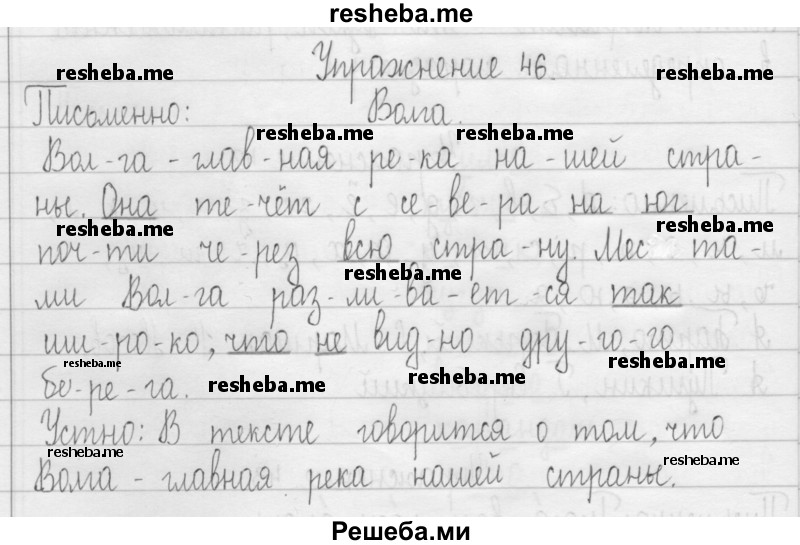 resheba.me
Упражнение 46.
resheba.me resheba.me
Письменно: Волга.
resheba.me resheba.me
Вол-га - глав-ная ре-ка на-шей стра-
ны. Она те-чёт с се-ве-ра на юг
resheba.me resheba.me
поч-ти че-рез всю стра-ну. Мес-та-
resheba.me
ми Вол-га раз-ли-ва-ет-ся так
ши-ро-ко, что не вид-но дру-го-го
resheba.me resheba.me
бе-ре-га.
resheba.me
Устно: В тексте говорится о том, что
resheba.me resheba.me
Волга - главная река нашей страны.
Решеба.ми